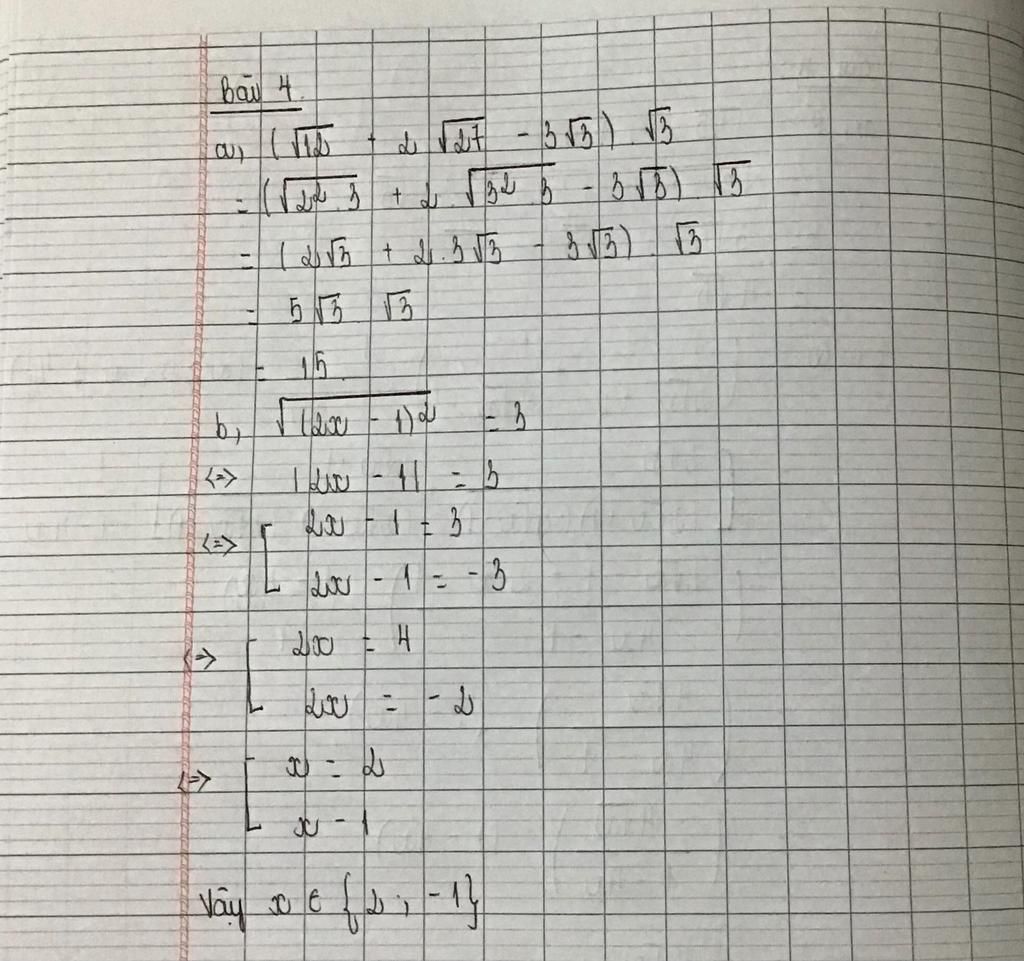 Bài 4.
a, (√12 + 2√27 - 3√3) . √3
= (√2² . 3 + 2 . √3² . 3 - 3√3) √3
= (2√3 + 2.3√3 - 3√3) . √3
= 5√3 √3
= 15.
b, √(2x - 1)² = 3
<=> |2x - 1| = 3
<=> [ 2x - 1 = 3
2x - 1 = -3
<=> [ 2x = 4
2x = -2
<=> [ x = 2
x - 1
Vậy x ∈ {2; -1}